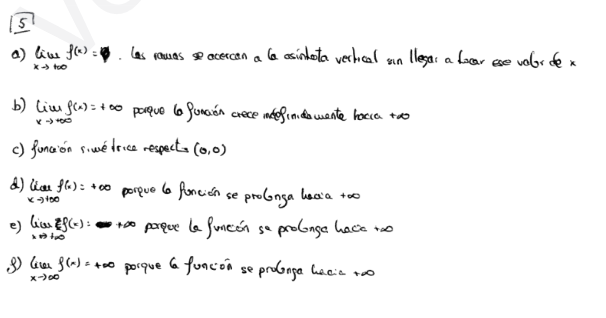 5
a) lim f(x) = . Las ramas se acercan a la asíntota vertical sin llegar a tocar ese valor de x
x→+∞
b) lim f(x) = +∞ porque la función crece indefinidamente hacia +∞
x→+∞
c) función simétrica respecto (0,0)
d) lim f(x) = +∞ porque la función se prolonga hacia +∞
x→+∞
e) lim f(x) = +∞ porque la función se prolonga hacia +∞
x→+∞
f) lim f(x) = +∞ porque la función se prolonga hacia +∞
x→∞